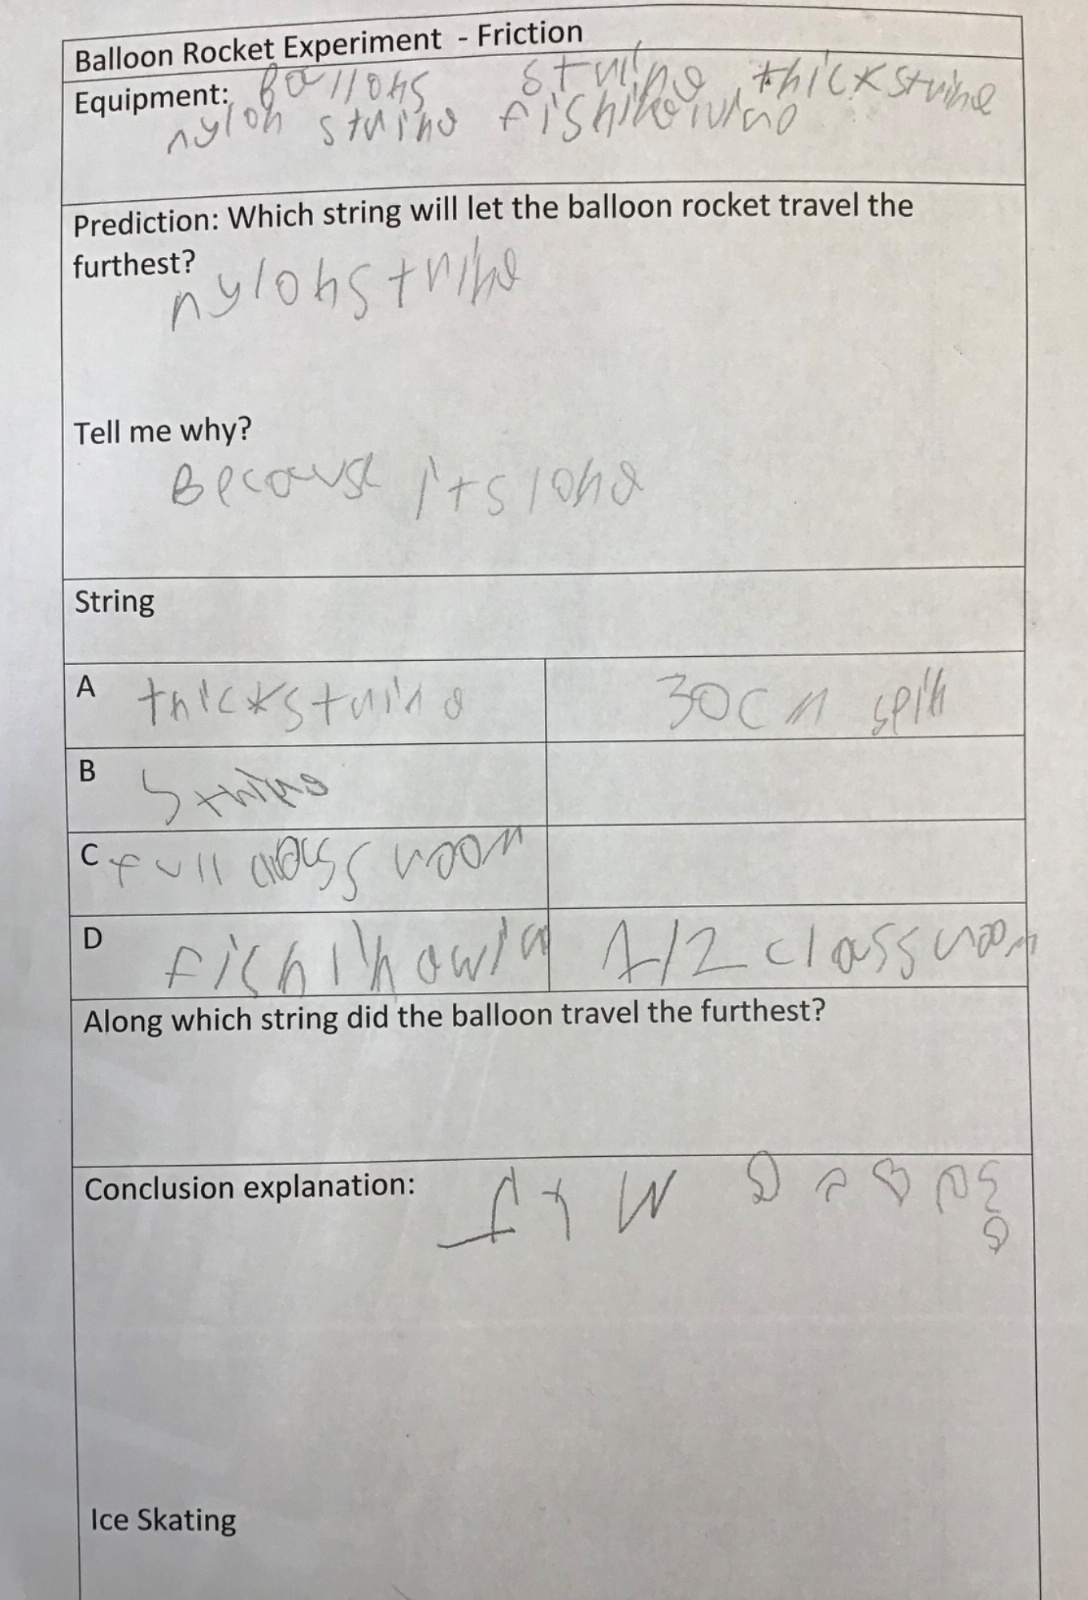 Balloon Rocket Experiment - Friction
Equipment: Ballons string thickstring
nylon string
Prediction: Which string will let the balloon rocket travel the
furthest?
nylonstring
Tell me why?
Because itslong
String
A thickstring 30cm spin
B string
C full classroom
D 1/2 classroom
Along which string did the balloon travel the furthest?
Conclusion explanation:
Ice Skating